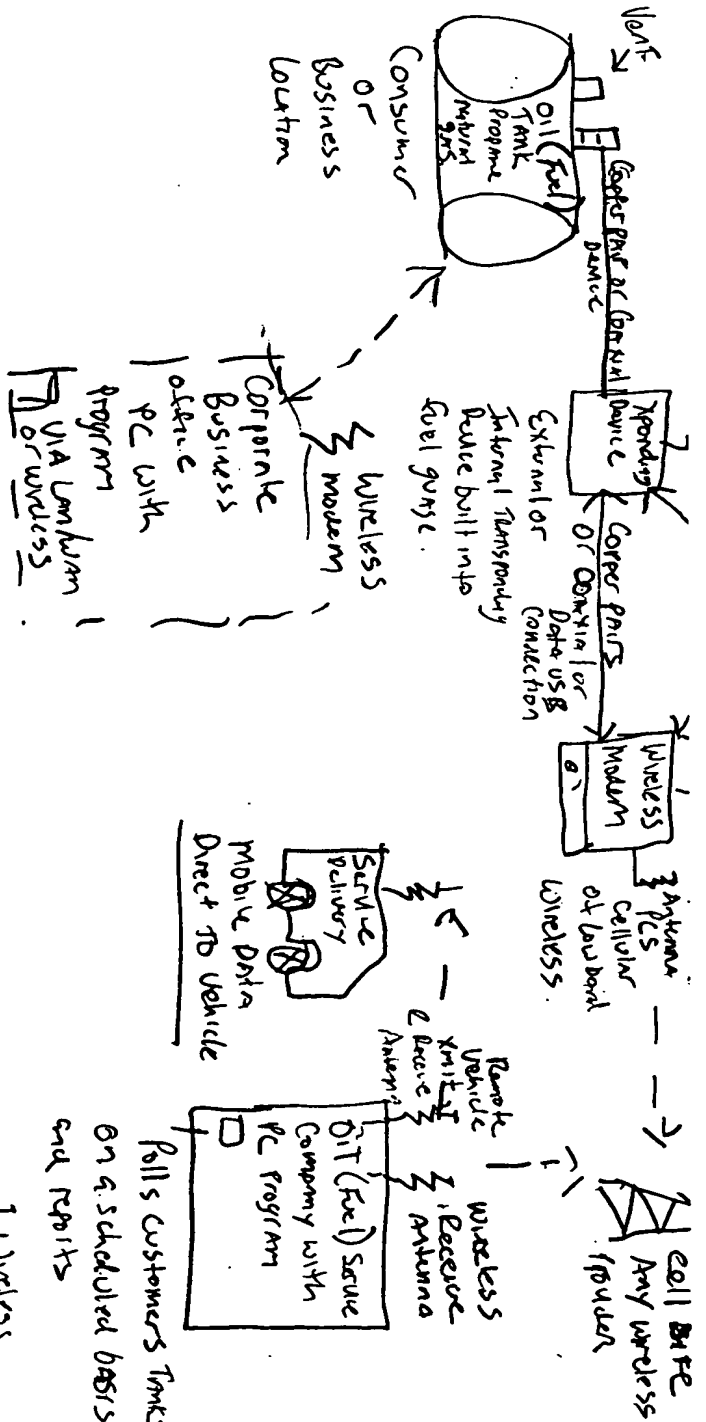 Vent
Oil (Fuel)
TANK
Propane
natural
gas
Consumer
or
Business
Location
Copper pair or Coaxial
Device
Xponding
Device
External or
Internal Transponding
Device built into
fuel guage.
Copper pairs
or Coaxial or
Data USB
Connection
Wireless
Modem
Antenna
PCS
Cellular
or Low band
Wireless
Cell
Any wireless
Wireless
modem
Corporate
Business
office
PC with
Program
VIA LAN/WAN
or wireless
Service
Delivery
Mobile DATA
Direct TO Vehicle
Remote
Vehicle
Xmit
& Receive
Antenna
Wireless
Receive
Antenna
Oil (Fuel)
Company with
PC Program
Polls customers Tanks
on a scheduled basis
and reports